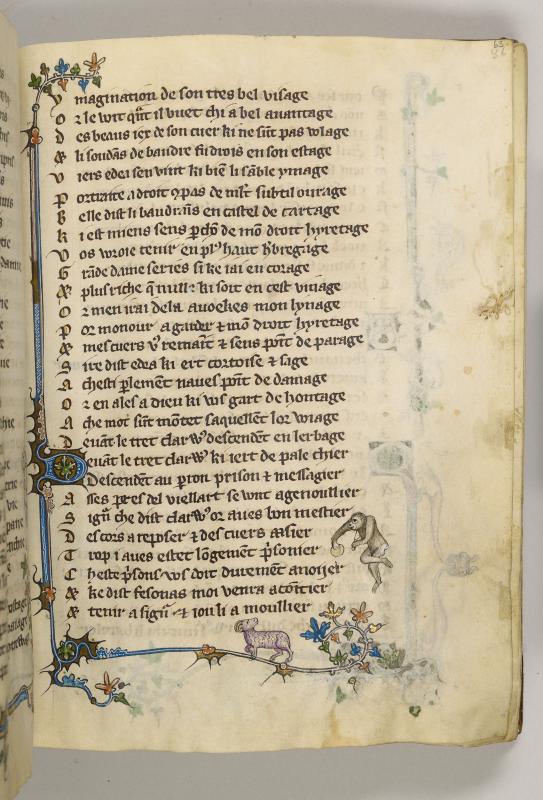 63
V magination de son tres bel visage
O r le voit qñt il vuet chi a bel auantage
D es beaus iex de son cuer ki ne sũt pas volage
& li soudãs de baudre fu drois en son estage
V iers edea sen vint ki biẽ li sãble ymage
P ortraite a droit cõpas de mlt subtil ourage
B elle dist li baudrãns en castel de cartage
K i est miens sens ꝑchõ de mõ droit hyretage
V os vroie tenir en pl' haut hbregage
G rãde dame series si ke iai en corage
& plus riche q̃ nulle ki soit en cest vinage
O r men irai dela auoekes mon lynage
P or monour a garder & mõ droit hyretage
& mes cuers v9 remaĩt & sens põt de parage
S ire dist edea ki ert cortoise & sage
A chest ꝑlement naues põt de damage
O r en ales a dieu ki vos gart de hontage
A che mot sũt mõtet saquellẽt lor viage
D euãt le tret clarw9 descendẽt en lerbage
D euãt le tret clarw9 ki iert de pale chier
Descendẽt au ꝑron prison & messagier
A sses pres del viellart se vont agenoullier
S ignr che dist clarw9 or aues bon mestier
D es cors a reposer & des cuers aasier
T rop i aues estet lõgement p̃sonier
C heste p̃sons vos doit durement anoijer
& ke dist fesonas moi venra acõitier
& tenir a signr & iou li a moullier